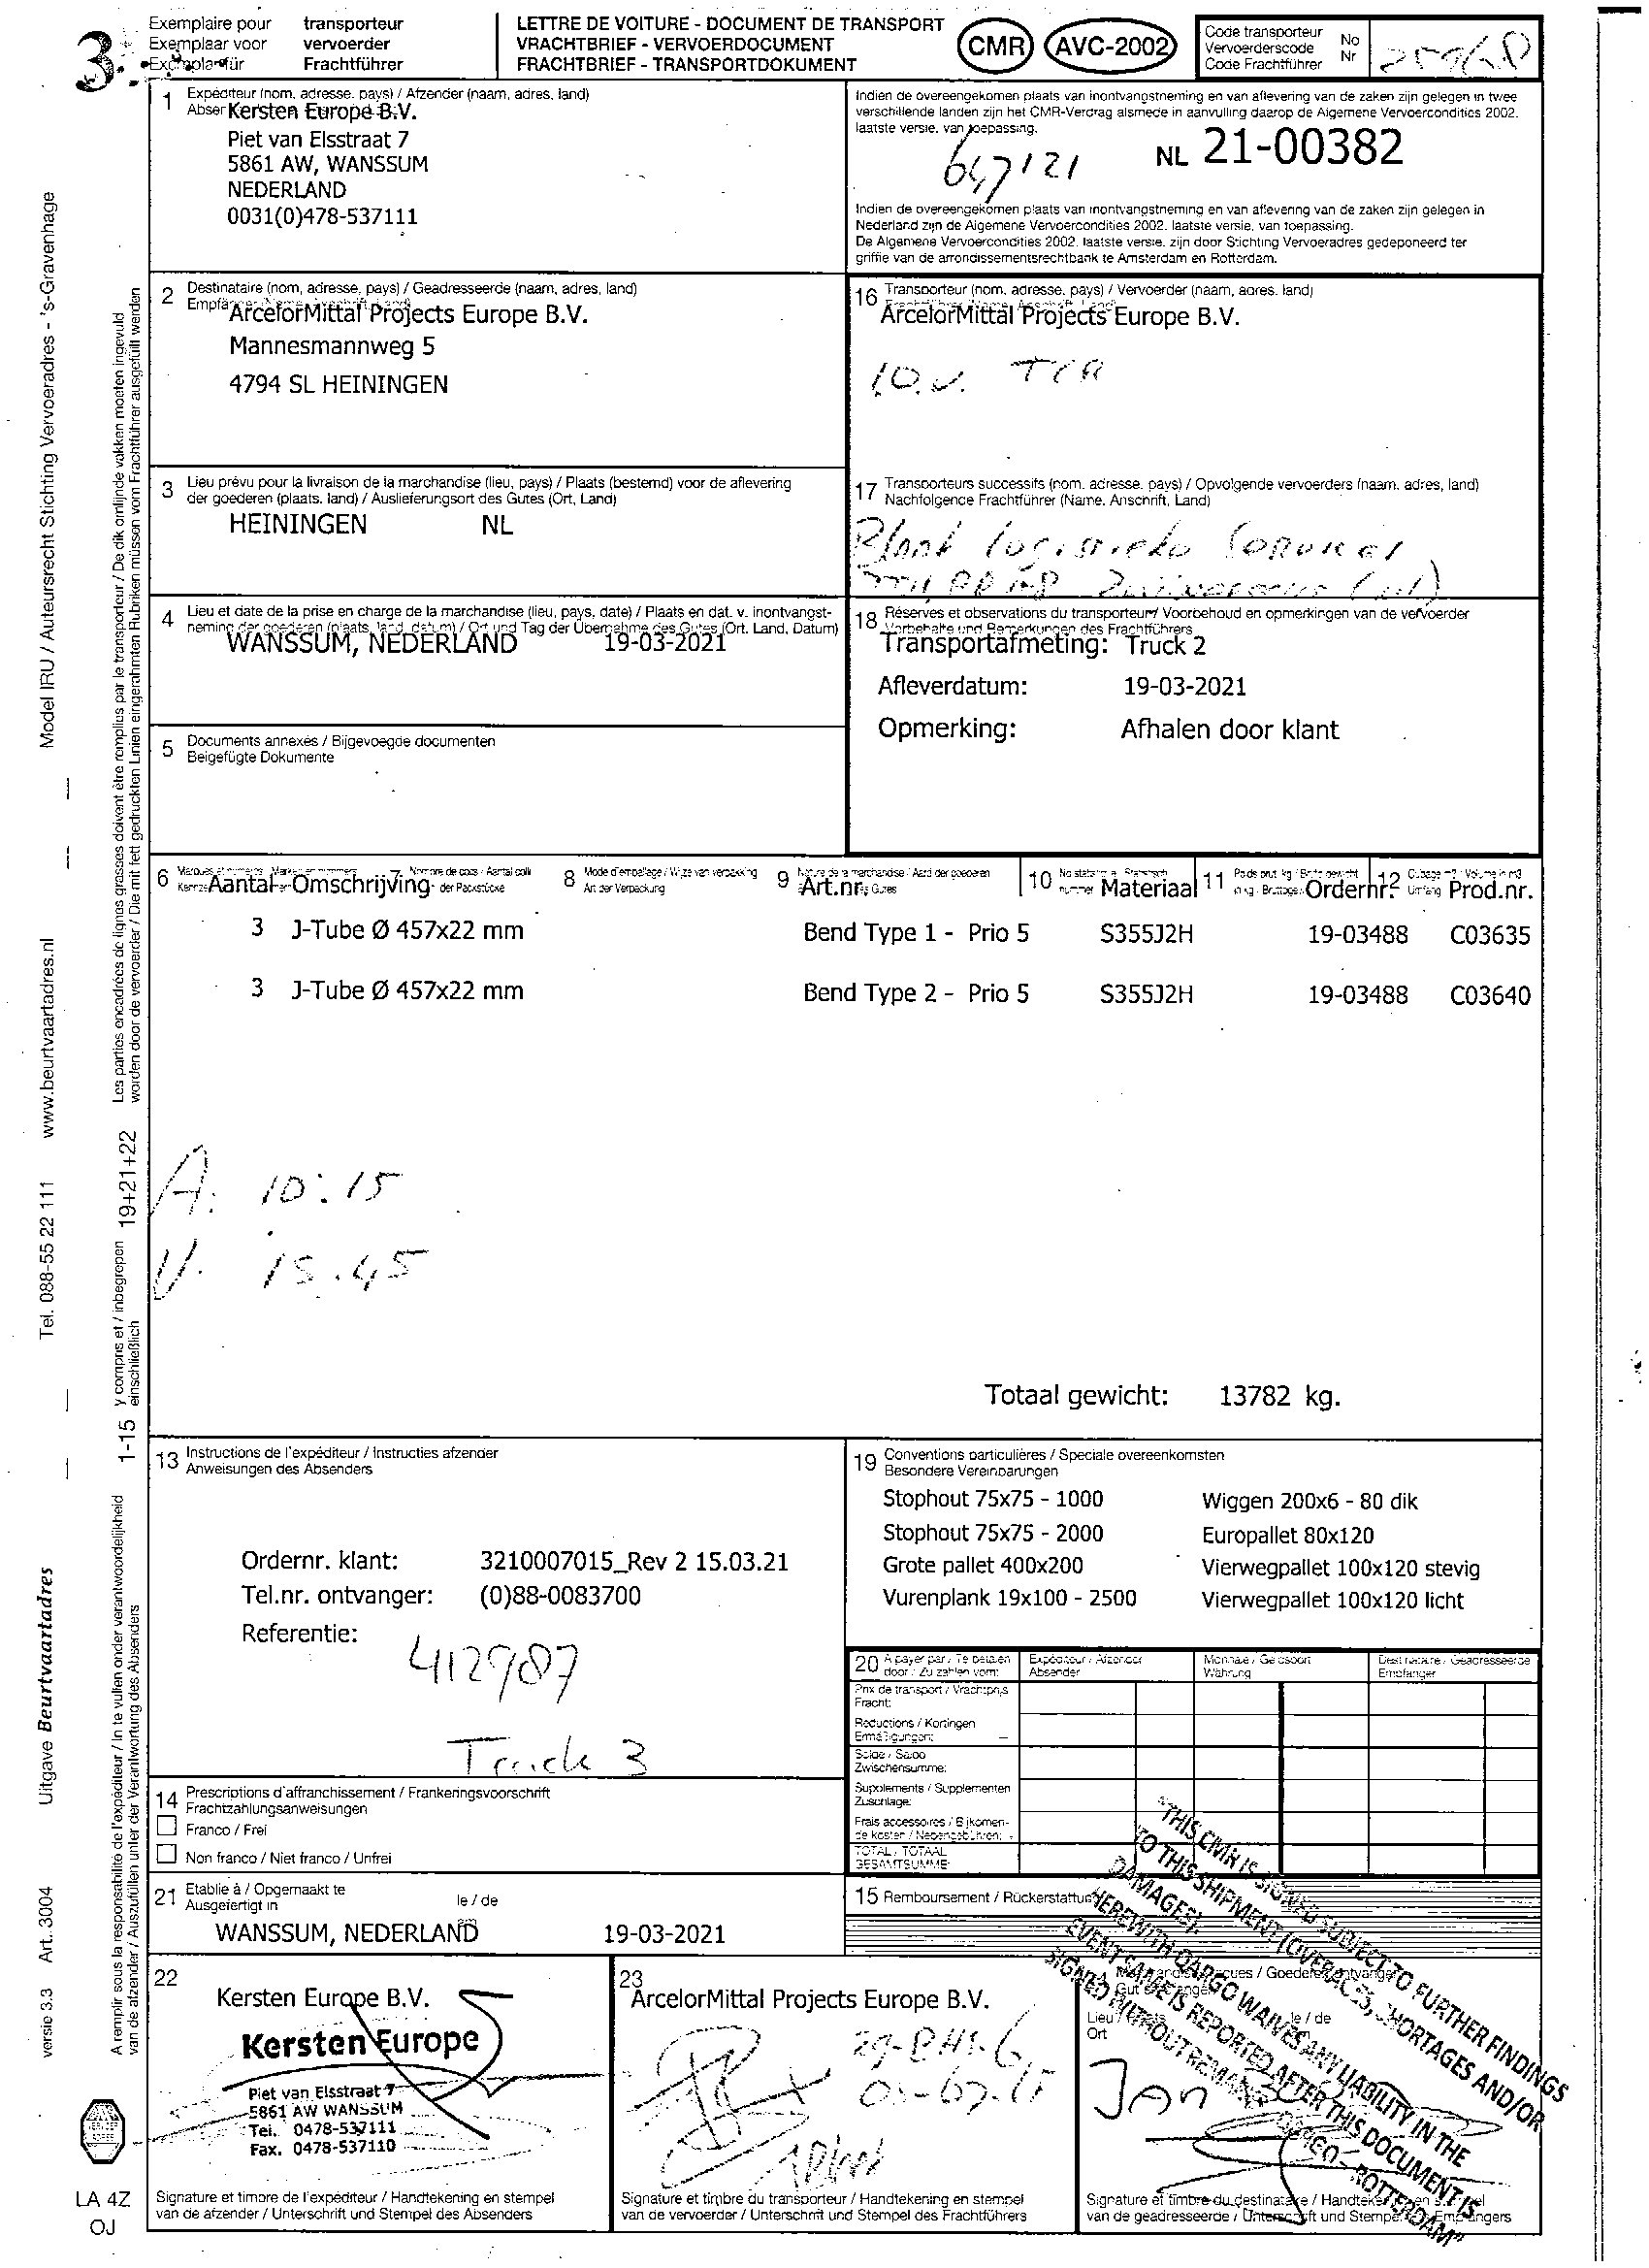 3
Exemplaire pour transporteur
Exemplaar voor vervoerder
Exemplar für Frachtführer
LETTRE DE VOITURE - DOCUMENT DE TRANSPORT
VRACHTBRIEF - VERVOERDOCUMENT
FRACHTBRIEF - TRANSPORTDOKUMENT
CMR AVC-2002
Code transporteur No
Vervoerderscode Nr
Code Frachtführer
1 Expéditeur (nom, adresse, pays) / Afzender (naam, adres, land)
Kersten Europe B.V.
Piet van Elsstraat 7
5861 AW, WANSSUM
NEDERLAND
0031(0)478-537111
Indien de overeengekomen plaats van inontvangstneming en van aflevering van de zaken zijn gelegen in twee
verschillende landen zijn het CMR-Verdrag alsmede in aanvulling daarop de Algemene Vervoercondities 2002,
laatste versie, van toepassing.
NL 21-00382
Indien de overeengekomen plaats van inontvangstneming en van aflevering van de zaken zijn gelegen in
Nederland zijn de Algemene Vervoercondities 2002, laatste versie, van toepassing.
De Algemene Vervoercondities 2002, laatste versie, zijn door Stichting Vervoeradres gedeponeerd ter
griffie van de arrondissementsrechtbank te Amsterdam en Rotterdam.
2 Destinataire (nom, adresse, pays) / Geadresseerde (naam, adres, land)
ArcelorMittal Projects Europe B.V.
Mannesmannweg 5
4794 SL HEININGEN
16 Transporteur (nom, adresse, pays) / Vervoerder (naam, adres, land)
ArcelorMittal Projects Europe B.V.
3 Lieu prévu pour la livraison de la marchandise (lieu, pays) / Plaats (bestemd) voor de aflevering
der goederen (plaats, land) / Auslieferungsort des Gutes (Ort, Land)
HEININGEN NL
17 Transporteurs successifs (nom, adresse, pays) / Opvolgende vervoerders (naam, adres, land)
Nachfolgence Frachtführer (Name, Anschrift, Land)
4 Lieu et date de la prise en charge de la marchandise (lieu, pays, date) / Plaats en dat. v. inontvangst-
neming der goederen (plaats, land, datum) / Ort und Tag der Übernahme des Gutes (Ort, Land, Datum)
WANSSUM, NEDERLAND 19-03-2021
18 Réserves et observations du transporteur / Voorbehoud en opmerkingen van de vervoerder
Vorbehalte und Bemerkungen des Frachtführers
Transportafmeting: Truck 2
Afleverdatum: 19-03-2021
Opmerking: Afhalen door klant
5 Documents annexés / Bijgevoegde documenten
Beigefügte Dokumente
6 Aantal Omschrijving 7 8 Mode d'emballage / Wijze van verpakking 9 Art.nr. 10 Materiaal 11 Ordernr. 12 Prod.nr.
Art der Verpackung
3 J-Tube Ø 457x22 mm Bend Type 1 - Prio 5 S355J2H 19-03488 C03635
3 J-Tube Ø 457x22 mm Bend Type 2 - Prio 5 S355J2H 19-03488 C03640
A. 10:15
V. 15.45
Totaal gewicht: 13782 kg.
13 Instructions de l'expéditeur / Instructies afzender
Anweisungen des Absenders
Ordernr. klant: 3210007015_Rev 2 15.03.21
Tel.nr. ontvanger: (0)88-0083700
Referentie:
412987
Truck 3
19 Conventions particulières / Speciale overeenkomsten
Besondere Vereinbarungen
Stophout 75x75 - 1000 Wiggen 200x6 - 80 dik
Stophout 75x75 - 2000 Europallet 80x120
Grote pallet 400x200 Vierwegpallet 100x120 stevig
Vurenplank 19x100 - 2500 Vierwegpallet 100x120 licht
20 A payer par / Te betalen
door / Zu zahlen vom:
Expéditeur / Afzender
Absender
Monnaie / Geldsoort
Währung
Destinataire / Geadresseerde
Empfänger
Prix de transport / Vrachtprijs
Fracht:
Reductions / Kortingen
Ermäßigungen:
Solde / Saldo
Zwischensumme:
Suppléments / Supplementen
Zuschläge:
Frais accessoires / Bijkomen-
de kosten / Nebengebühren:
TOTAL / TOTAAL
GESAMTSUMME:
14 Prescriptions d'affranchissement / Frankeringsvoorschrift
Frachtzahlungsanweisungen
Franco / Frei
Non franco / Niet franco / Unfrei
21 Etablie à / Opgemaakt te le / de
Ausgefertigt in
WANSSUM, NEDERLAND 19-03-2021
15 Remboursement / Rückerstattung
22
Kersten Europe B.V.
Kersten Europe
Piet van Elsstraat 7
5861 AW WANSSUM
Tel. 0478-537111
Fax. 0478-537110
Signature et timbre de l'expéditeur / Handtekening en stempel
van de afzender / Unterschrift und Stempel des Absenders
23
ArcelorMittal Projects Europe B.V.
Signature et timbre du transporteur / Handtekening en stempel
van de vervoerder / Unterschrift und Stempel des Frachtführers
Lieu
Ort
le / de
Jan
Signature et timbre du destinataire / Handtekening en stempel
van de geadresseerde / Unterschrift und Stempel des Empfängers
"THIS CMR IS SIGNED SUBJECT TO FURTHER FINDINGS
TO THIS SHIPMENT (OVERAGES, SHORTAGES AND/OR
DAMAGES).
HEREWITH QARGO WAIVES ANY LIABILITY IN THE
EVENT SAME IS REPORTED AFTER THIS DOCUMENT IS
SIGNED WITHOUT REMARKS QARGO - ROTTERDAM"
Model IRU / Auteursrecht Stichting Vervoeradres - 's-Gravenhage
www.beurtvaartadres.nl
Tel. 088-55 22 111
Uitgave Beurtvaartadres
Art. 3004
versie 3.3
Les parties encadrées de lignes grasses doivent être remplies par le transporteur / De dik omlijnde vakken moeten ingevuld
worden door de vervoerder / Die mit fett gedruckten Linien eingerahmten Rubriken müssen vom Frachtführer ausgefüllt werden
19+21+22
y compris et / inbegrepen
einschließlich
1-15
A remplir sous la responsabilité de l'expéditeur / In te vullen onder verantwoordelijkheid
van de afzender / Auszufüllen unter der Verantwortung des Absenders
LA 4Z
OJ